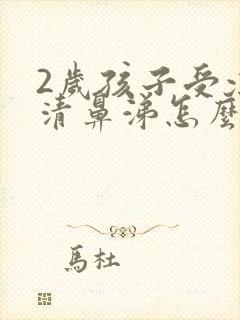 2歲孩子受
清鼻涕怎麼
馬杜